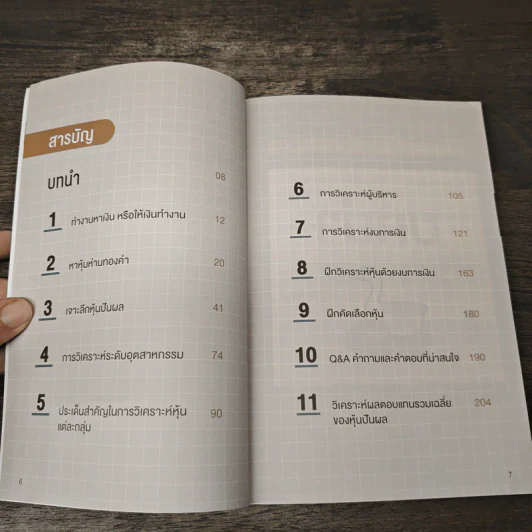 สารบัญ
บทนำ 08
1 ทำงานหาเงิน หรือให้เงินทำงาน 12
2 หาหุ้นห่านทองคำ 20
3 เจาะลึกหุ้นปันผล 41
4 การวิเคราะห์ระดับอุตสาหกรรม 74
5 ประเด็นสำคัญในการวิเคราะห์หุ้น 90
แต่ละกลุ่ม
6
6 การวิเคราะห์ผู้บริหาร 105
7 การวิเคราะห์งบการเงิน 121
8 ฝึกวิเคราะห์หุ้นด้วยงบการเงิน 163
9 ฝึกคัดเลือกหุ้น 180
10 Q&A คำถามและคำตอบที่น่าสนใจ 190
11 วิเคราะห์ผลตอบแทนรวมเฉลี่ย 204
ของหุ้นปันผล
7